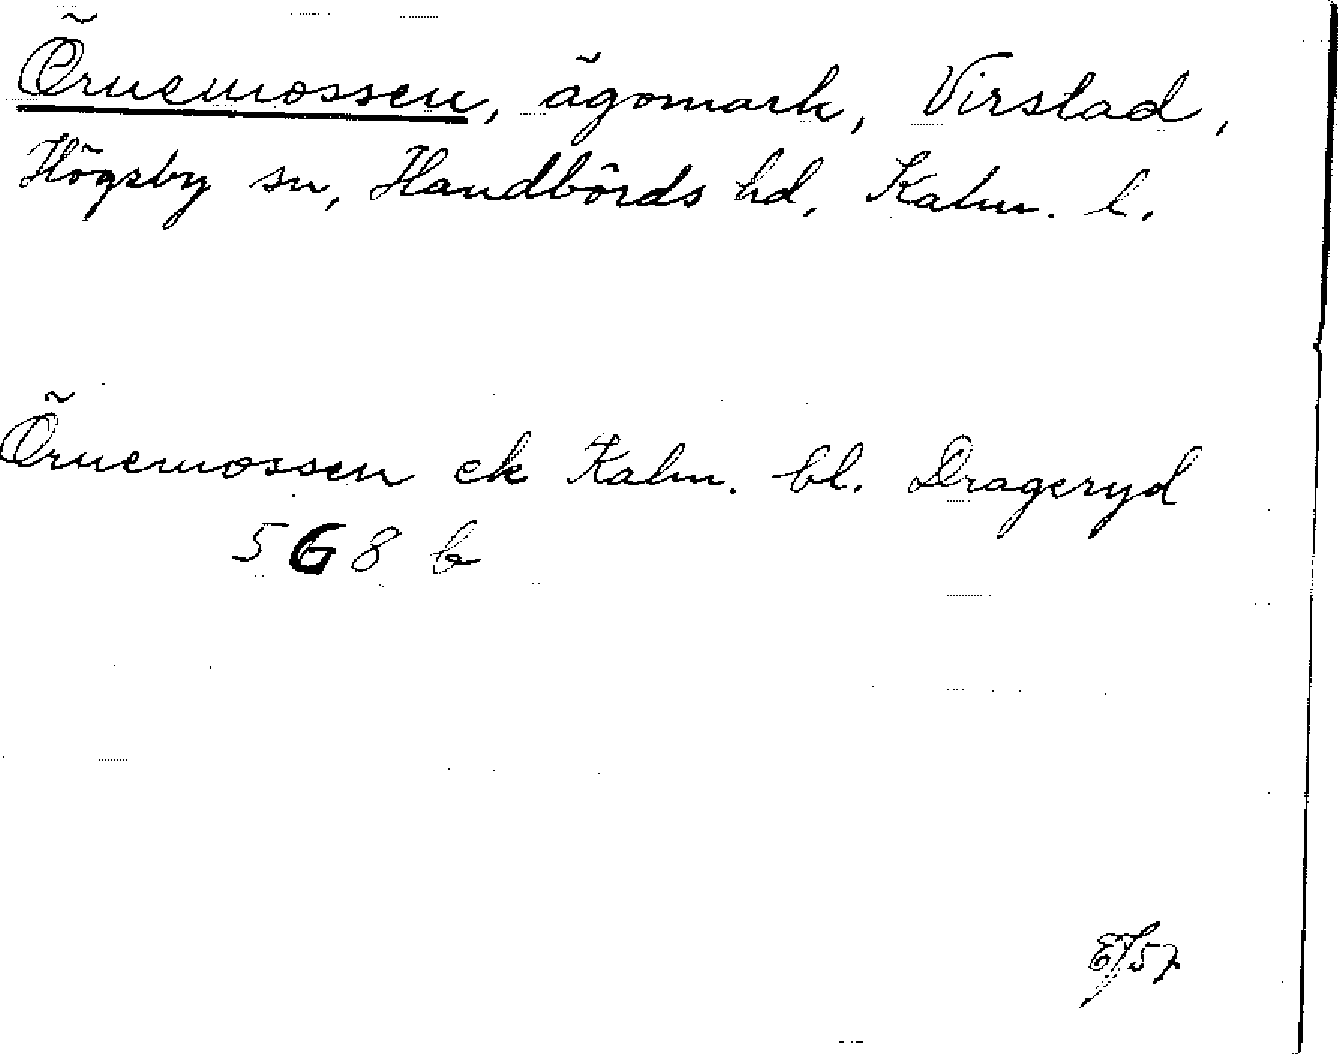 Örnemossen, ägomark, Virstad,
Högsby sn, Handbörds hd, Kalm. l.
Örnemossen ek Kalm. bl. Drageryd
5 G 8 b
EJ 57